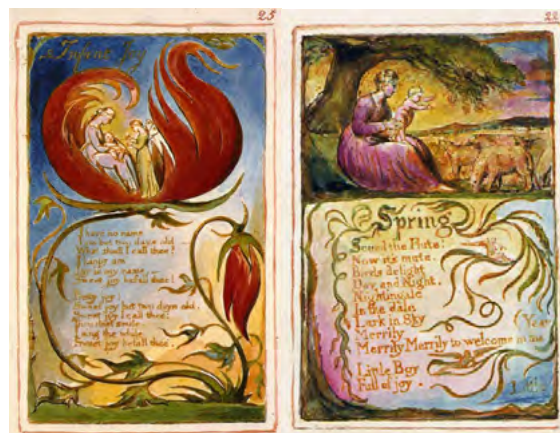 25
Infant Joy
I have no name
I am but two days old.
What shall I call thee?
I happy am
Joy is my name.
Sweet joy befall thee!
Pretty joy!
Sweet joy but two days old.
Sweet joy I call thee:
Thou dost smile.
I sing the while
Sweet joy befall thee.
22
Spring
Sound the Flute!
Now it's mute.
Birds delight
Day and Night.
Nightingale
In the dale
Lark in Sky
Merrily
Merrily Merrily to welcome in the Year
Little Boy
Full of joy.